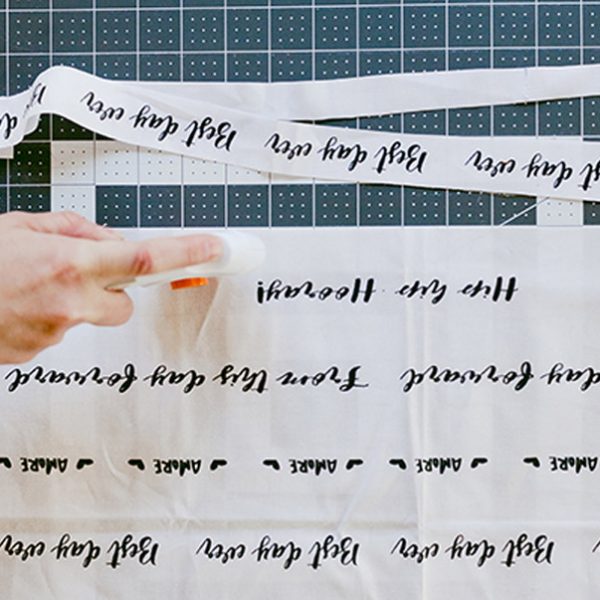 Best day ever Best day ever Best day ever
AMORE AMORE AMORE AMORE AMORE
day forward From this day forward
Hip hip Hooray!
day ever Best day ever Best day ever